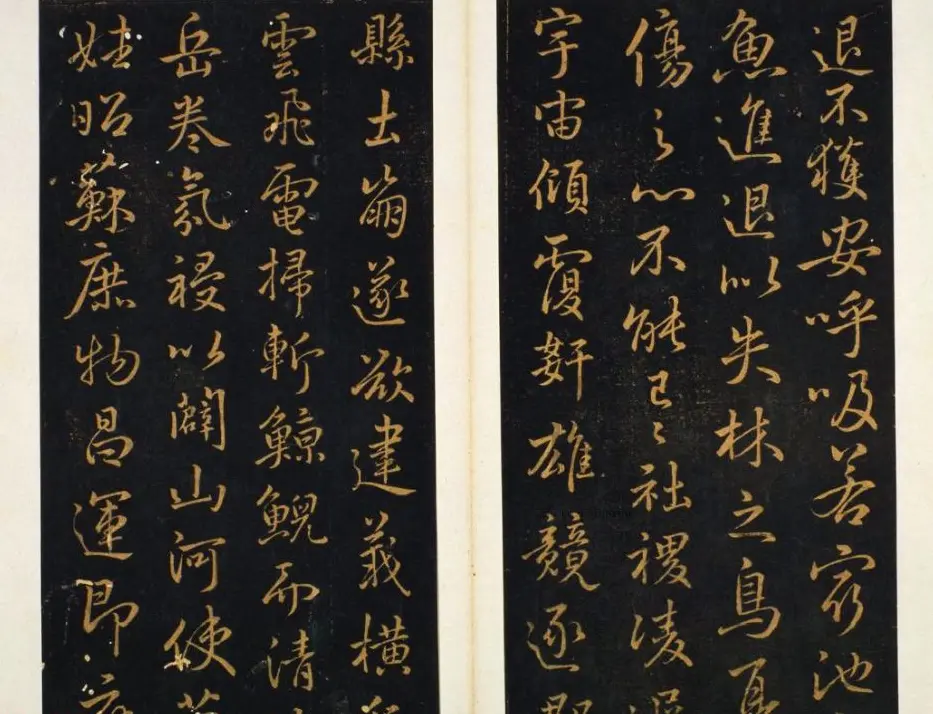 退不獲安呼吸若窮池
魚進退以失林之鳥憂
傷之心不能已々社稷凌遲
宇宙傾覆姧雄競逐郡
縣土崩遂欲建義橫
雲飛電掃斬鯨鯢而清
岳卷氛祲以闢山河使萬
姓昭蘇庶物昌運即應